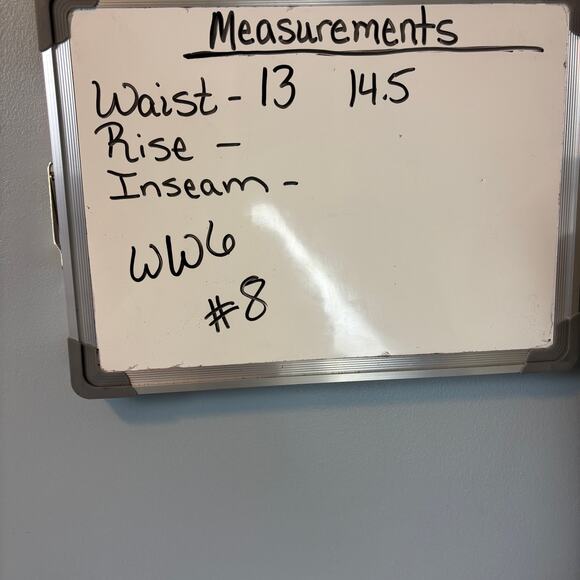 Measurements
Waist - 13 14.5
Rise -
Inseam -
WW6
#8